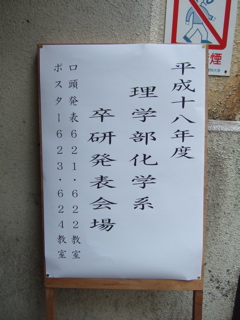 平成十八年度
理学部化学系
卒研発表会場
口頭発表621・622教室
ポスター623・624教室
煙